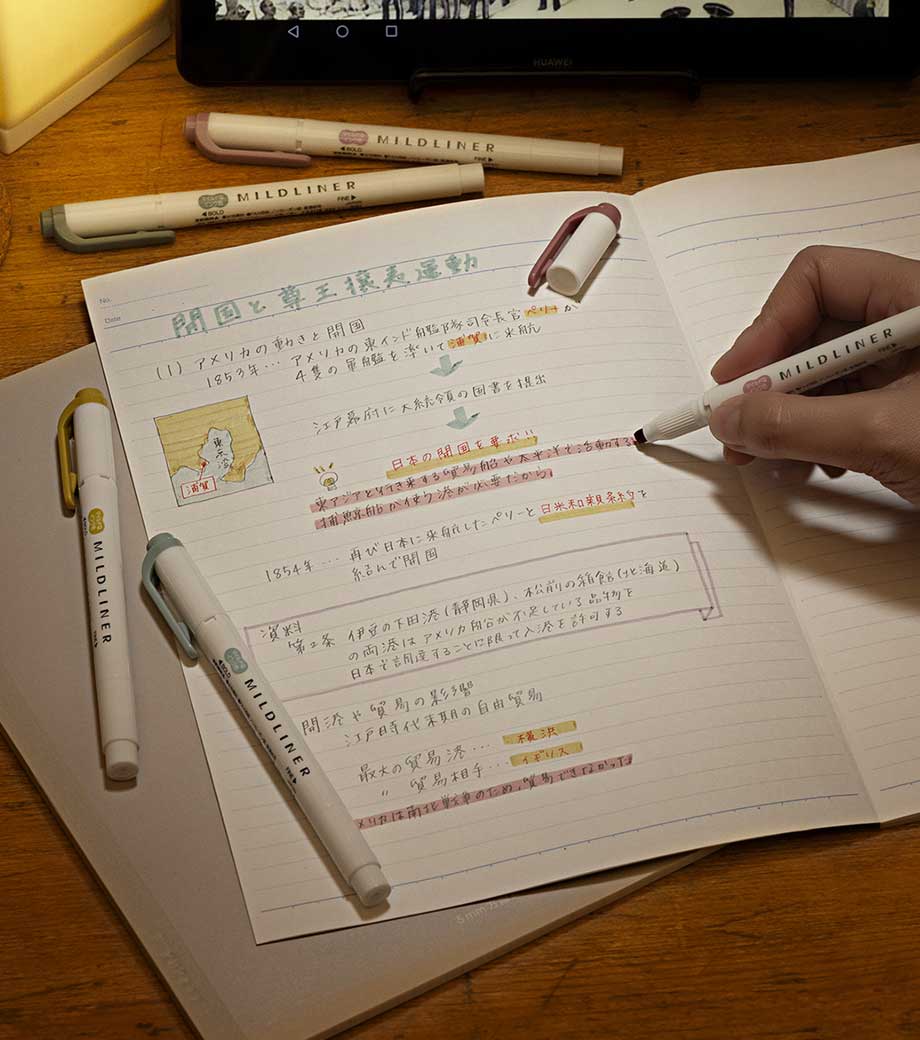 HUAWEI
MILDLINER
◀BOLD
FINE▶
MILDLINER
◀BOLD
FINE▶
No.
Date
開国と尊王攘夷運動
(1) アメリカの動きと開国
1853年… アメリカの東インド艦隊司令長官ペリーが
4隻の軍艦を率いて浦賀に来航
江戸幕府に大統領の国書を提出
日本の開国を要求!!
東アジアと行き来する貿易船や太平洋で活動する
捕鯨船が使う港が必要だから
東京湾
浦賀
1854年… 再び日本に来航したペリーと日米和親条約を
結んで開国
資料
第2条 伊豆の下田港(静岡県)、松前の箱館(北海道)
の両港はアメリカ船が不足している品物を
日本で調達することに限って入港を許可する
開港や貿易の影響
江戸時代末期の自由貿易
最大の貿易港… 横浜
〃 貿易相手… イギリス
メリカは南北戦争のため,貿易できなかった
MILDLINER
MILDLINER
MILDLINER
5 mm